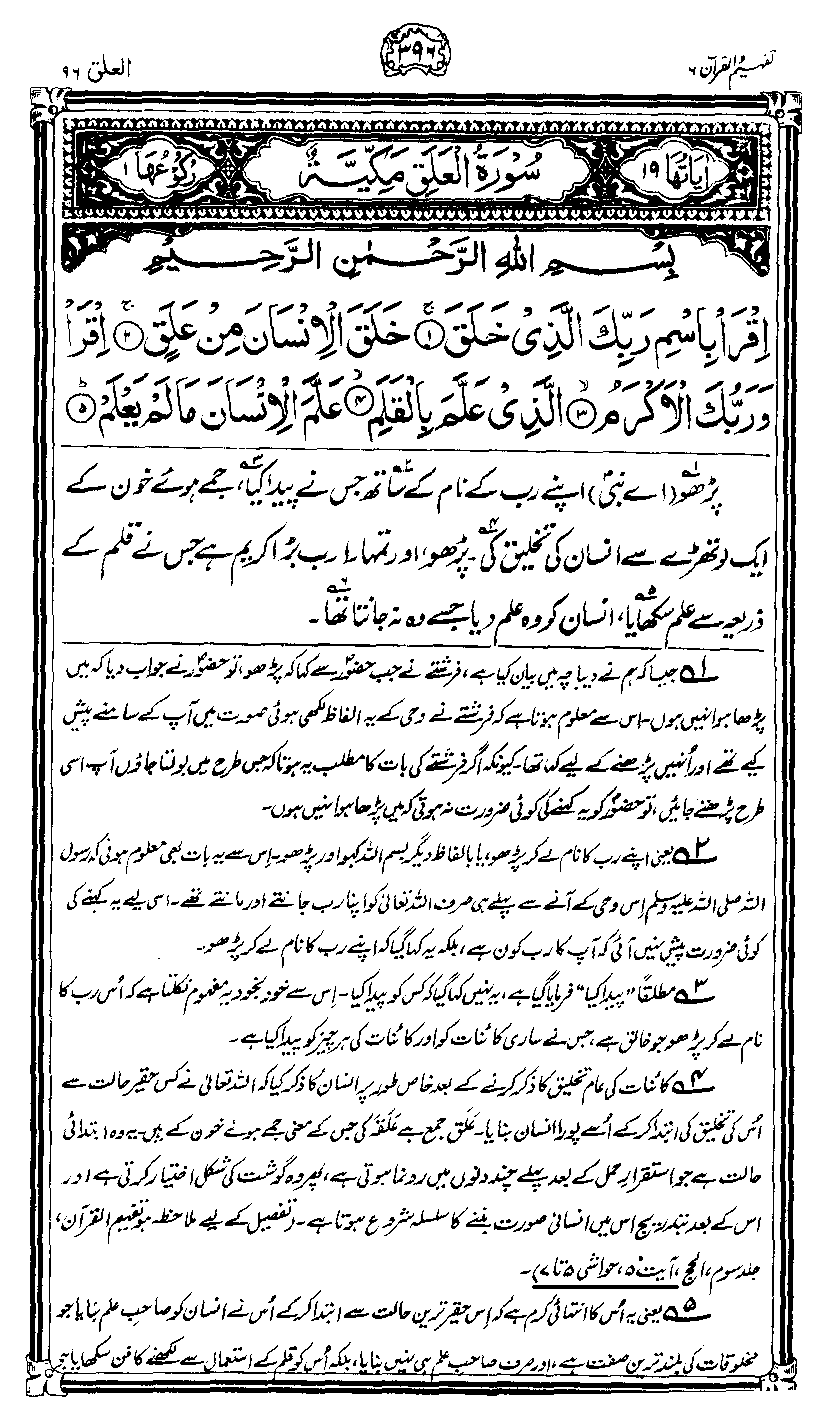 تفہیم القرآن ۶
۳۹۶
العلق ۹۶
اٰیَاتُهَا ۱۹
سُوْرَةُ الْعَلَقِ مَكِّيَّةٌ
رُكُوْعُهَا ۱
بِسْمِ اللهِ الرَّحْمٰنِ الرَّحِيْمِ
اِقْرَاْ بِاسْمِ رَبِّكَ الَّذِیْ خَلَقَ ۚ﴿۱﴾ خَلَقَ الْاِنْسَانَ مِنْ عَلَقٍ ۚ﴿۲﴾ اِقْرَاْ
وَرَبُّكَ الْاَكْرَمُ ۙ﴿۳﴾ الَّذِیْ عَلَّمَ بِالْقَلَمِ ۙ﴿۴﴾ عَلَّمَ الْاِنْسَانَ مَا لَمْ يَعْلَمْ ؕ﴿۵﴾
پڑھو۱؎ (اے نبیؐ) اپنے رب کے نام کے ساتھ۲؎ جس نے پیدا کیا،۳؎ جمے ہوئے خون کے
ایک لوتھڑے سے انسان کی تخلیق کی۔۴؎ پڑھو، اور تمہارا رب بڑا کریم ہے جس نے قلم کے
ذریعہ سے علم سکھایا،۵؎ انسان کو وہ علم دیا جسے وہ نہ جانتا تھا۔۶؎
۱؎ جیسا کہ ہم نے دیباچہ میں بیان کیا ہے، فرشتے نے جب حضورؐ سے کہا کہ پڑھو، تو حضورؐ نے جواب دیا کہ میں
پڑھا ہوا نہیں ہوں۔ اس سے معلوم ہوتا ہے کہ فرشتے نے وحی کے یہ الفاظ لکھی ہوئی صورت میں آپ کے سامنے پیش
کیے تھے اور اُنہیں پڑھنے کے لیے کہا تھا۔ کیونکہ اگر فرشتے کی بات کا مطلب یہ ہوتا کہ جس طرح میں بولتا جاؤں آپ اسی
طرح پڑھتے جائیں، تو حضورؐ کو یہ کہنے کی کوئی ضرورت نہ ہوتی کہ میں پڑھا ہوا نہیں ہوں۔
۲؎ یعنی اپنے رب کا نام لے کر پڑھو، یا بالفاظ دیگر بسم اللہ کہو اور پڑھو۔ اِس سے یہ بات بھی معلوم ہوئی کہ رسول
اللہ صلی اللہ علیہ وسلم اِس وحی کے آنے سے پہلے ہی صرف اللہ تعالیٰ کو اپنا رب جانتے اور مانتے تھے۔ اسی لیے یہ کہنے کی
کوئی ضرورت پیش نہیں آئی کہ آپ کا رب کون ہے، بلکہ یہ کہا گیا کہ اپنے رب کا نام لے کر پڑھو۔
۳؎ مطلقاً "پیدا کیا" فرمایا گیا ہے، یہ نہیں کہا گیا کہ کس کو پیدا کیا۔ اِس سے خود بخود یہ مفہوم نکلتا ہے کہ اُس رب کا
نام لے کر پڑھو جو خالق ہے، جس نے ساری کائنات کو اور کائنات کی ہر چیز کو پیدا کیا ہے۔
۴؎ کائنات کی عام تخلیق کا ذکر کرنے کے بعد خاص طور پر انسان کا ذکر کیا کہ اللہ تعالیٰ نے کس حقیر حالت سے
اُس کی تخلیق کی ابتدا کر کے اُسے پورا انسان بنایا۔ عَلَق جمع ہے عَلَقَہ کی جس کے معنی جمے ہوئے خون کے ہیں۔ یہ وہ ابتدائی
حالت ہے جو استقرارِ حمل کے بعد پہلے چند دنوں میں رونما ہوتی ہے، پھر وہ گوشت کی شکل اختیار کرتی ہے اور
اس کے بعد بتدریج اس میں انسانی صورت بننے کا سلسلہ شروع ہوتا ہے۔ (تفصیل کے لیے ملاحظہ ہو تفہیم القرآن،
جلد سوم، الحج، آیت ۵، حواشی ۵ تا ۷)۔
۵؎ یعنی یہ اُس کا انتہائی کرم ہے کہ اِس حقیر ترین حالت سے ابتدا کر کے اُس نے انسان کو صاحبِ علم بنایا جو
مخلوقات کی بلند ترین صفت ہے، اور صرف صاحب علم ہی نہیں بنایا، بلکہ اُس کو قلم کے استعمال سے لکھنے کا فن سکھایا جو